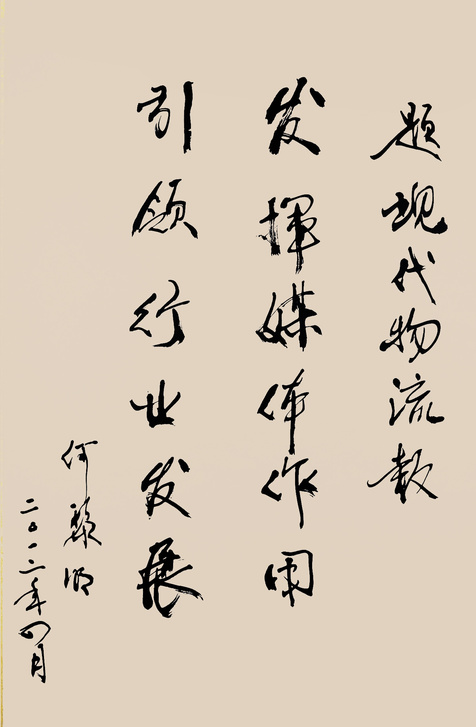 题现代物流报
发挥媒体作用
引领行业发展
何黎明
二〇一二年四月